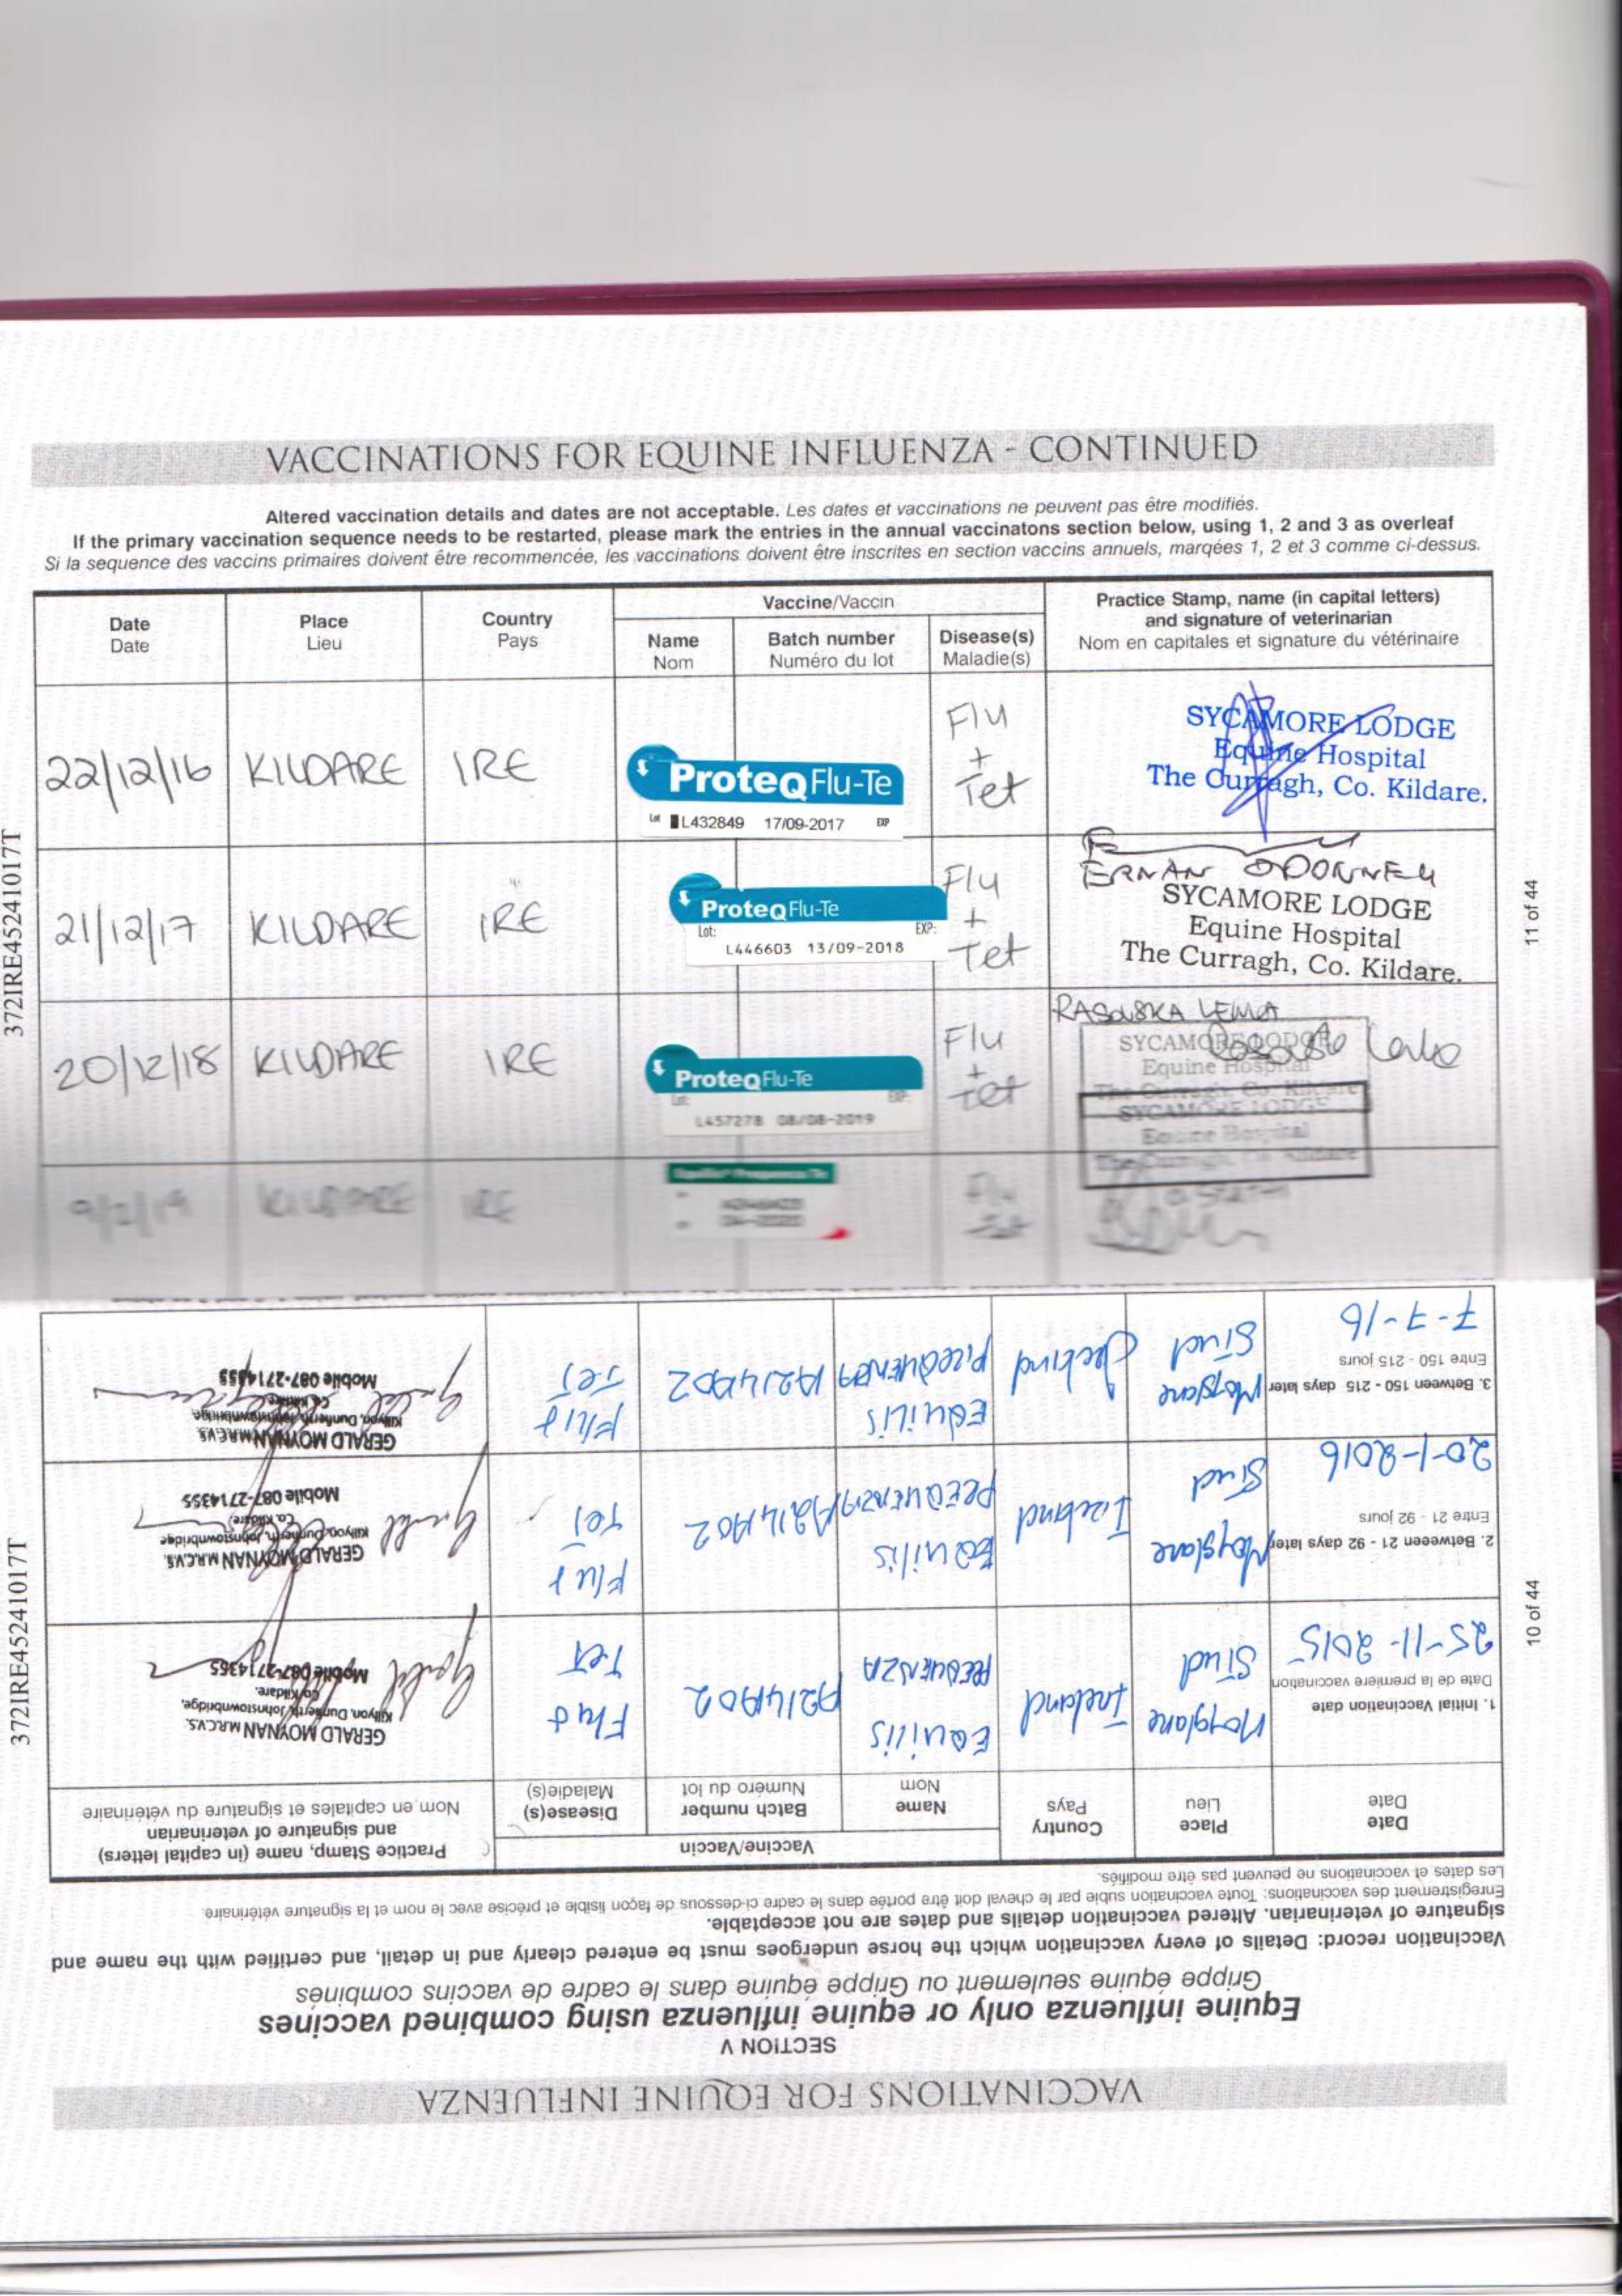 VACCINATIONS FOR EQUINE INFLUENZA - CONTINUED
Altered vaccination details and dates are not acceptable. Les dates et vaccinations ne peuvent pas être modifiés.
If the primary vaccination sequence needs to be restarted, please mark the entries in the annual vaccinatons section below, using 1, 2 and 3 as overleaf
Si la sequence des vaccins primaires doivent être recommencée, les vaccinations doivent être inscrites en section vaccins annuels, marqées 1, 2 et 3 comme ci-dessus.
Date
Date
Place
Lieu
Country
Pays
Vaccine/Vaccin
Name
Nom
Batch number
Numéro du lot
Disease(s)
Maladie(s)
Practice Stamp, name (in capital letters)
and signature of veterinarian
Nom en capitales et signature du vétérinaire
22/12/16
KILDARE
IRE
ProteqFlu-Te
Lot L432849 17/09-2017 EXP
Flu
+
Tet
SYCAMORE LODGE
Equine Hospital
The Curragh, Co. Kildare.
21/12/17
KILDARE
IRE
ProteqFlu-Te
Lot: EXP:
L446603 13/09-2018
Flu
+
Tet
ERNAN ODONNELL
SYCAMORE LODGE
Equine Hospital
The Curragh, Co. Kildare.
20/12/18
KILDARE
IRE
ProteqFlu-Te
Lot: EXP:
L457278 08/08-2019
Flu
+
Tet
SYCAMORE LODGE
Equine Hospital
The Curragh, Co. Kildare
SYCAMORE LODGE
Equine Hospital
The Curragh, Co. Kildare
KILDARE
IRE
Flu
372IRE45241017T
11 of 44
VACCINATIONS FOR EQUINE INFLUENZA
SECTION V
Equine influenza only or equine influenza using combined vaccines
Grippe équine seulement ou Grippe équine dans le cadre de vaccins combinés
Vaccination record: Details of every vaccination which the horse undergoes must be entered clearly and in detail, and certified with the name and
signature of veterinarian. Altered vaccination details and dates are not acceptable.
Enregistrement des vaccinations: Toute vaccination subie par le cheval doit être portée dans le cadre ci-dessous de façon lisible et précise avec le nom et la signature vétérinaire.
Les dates et vaccinations ne peuvent pas être modifiés.
Date
Date
Place
Lieu
Country
Pays
Vaccine/Vaccin
Name
Nom
Batch number
Numéro du lot
Disease(s)
Maladie(s)
Practice Stamp, name (in capital letters)
and signature of veterinarian
Nom en capitales et signature du vétérinaire
1. Initial Vaccination date
Date de la première vaccination
25-11-2015
Moyglare
Stud
Ireland
EQUILIS
PREQUENZA
A214A02
Flu +
Tet
GERALD MOYNAN M.R.C.V.S.
Killyon, Dunferth, Johnstownbridge,
Co. Kildare.
Mobile 087-2714355
2. Between 21 - 92 days later
Entre 21 - 92 jours
20-1-2016
Moyglare
Stud
Ireland
EQUILIS
PREQUENZA
A214A02
Flu +
Tet
GERALD MOYNAN M.R.C.V.S.
Killyon, Dunferth, Johnstownbridge
Co. Kildare
Mobile 087-2714355
3. Between 150 - 215 days later
Entre 150 - 215 jours
7-7-16
Moyglare
Stud
Ireland
EQUILIS
PREQUENZA
A214A02
Flu +
Tet
GERALD MOYNAN M.R.C.V.S.
Killyon, Dunferth, Johnstownbridge,
Co. Kildare
Mobile 087-2714355
372IRE45241017T
10 of 44